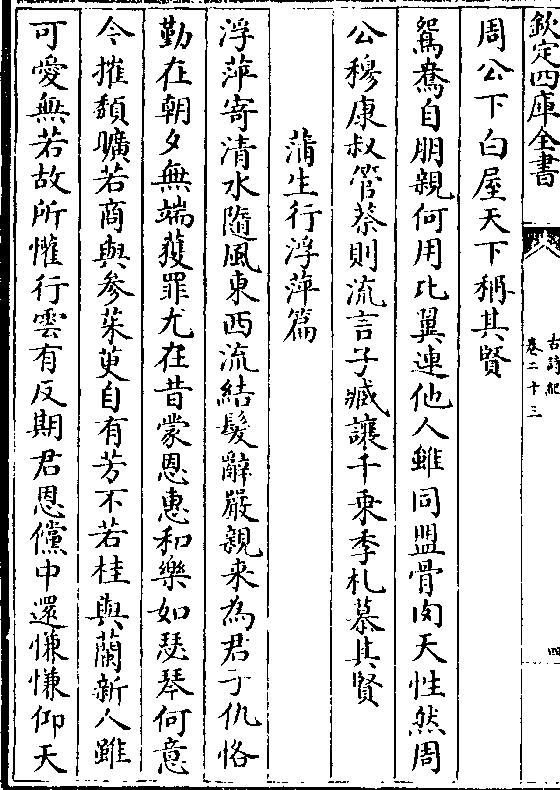 欽定四庫全書
古詩紀
卷二十三
四
周公下白屋天下稱其賢
鴛鴦自朋親何用比翼連他人雖同盟骨肉天性然周
公穆康叔管蔡則流言子臧讓千乗季札慕其賢
蒲生行浮萍篇
浮萍寄清水隨風東西流結髪辭嚴親来為君子仇恪
勤在朝夕無端獲罪尤在昔蒙恩惠和樂如瑟琴何意
今摧頽曠若商與參茱萸自有芳不若桂與蘭新人雖
可愛無若故所懽行雲有反期君恩儻中還慊慊仰天